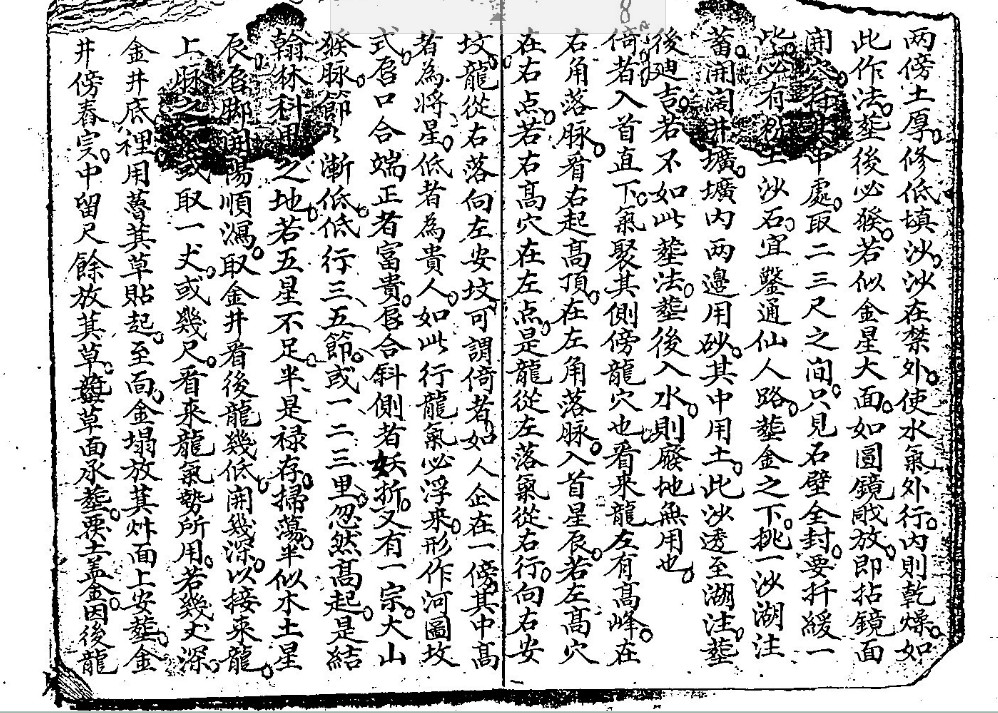 两傍土厚。修低填沙。沙在禁外。使水氣外行。内則乾燥。如
此作法。塟後必發。若似金星大面。如圓鏡戝放。即拈鏡面
開處取二三尺之间。只見石壁全封。要扦緩一
此必有沙石。宜鑿通仙人路。塟金之下。挑一沙湖注
蓄。開濶井壙。壙内两邊用砂。其中用土。此沙透至湖注。塟
後迪吉。若不如此塟法。塟後入水。則廢地無用也。
倚者。入首直下。氣聚其側傍。龍穴也。看來龍。左有高峰。在
右角落脉。看右起高頂。在左角落脉。入首星辰。若左高穴
在右点。若右高穴在左点。是龍從左落。氣從右行。向右安
坟。龍從右落。向左安坟。可謂倚者。如人企在一傍。其中高
者為將星。低者為貴人。如此行龍。氣必浮來。形作河圖坟
式。唇口合端正者富貴。唇合斜側者妖折。又有一宗。大山
脉。節々漸低。低行三五節。或一二三里。忽然高起。是結
翰林科甲之地。若五星不足。半是禄存掃蕩。半似木土星
辰。唇脚開陽順瀉。取金井。看後龍幾低。開幾深。以接來龍
上脉之或取一丈。或幾尺。看來龍氣勢所用。若幾丈深。
金井底裡。用萻萁草貼起。至面。金塌放萁炓面上。安塟。金
井傍舂宲。中留尺餘放萁草。蘱草面承塟。要土盖金。因後龍